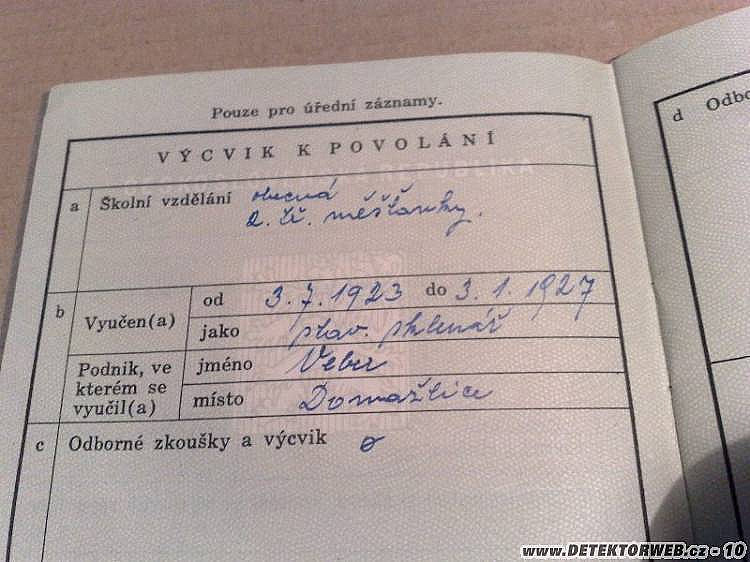 Pouze pro úřední záznamy.
VÝCVIK K POVOLÁNÍ
a Školní vzdělání obecná
2. tř. měšťanky.
b Vyučen(a) od 3.7.1923 do 3.1.1927
jako stav. sklenář
Podnik, ve kterém se vyučil(a) jméno Veber
místo Domažlice
c Odborné zkoušky a výcvik 0
d Odbo
www.DETEKTORWEB.cz - 10